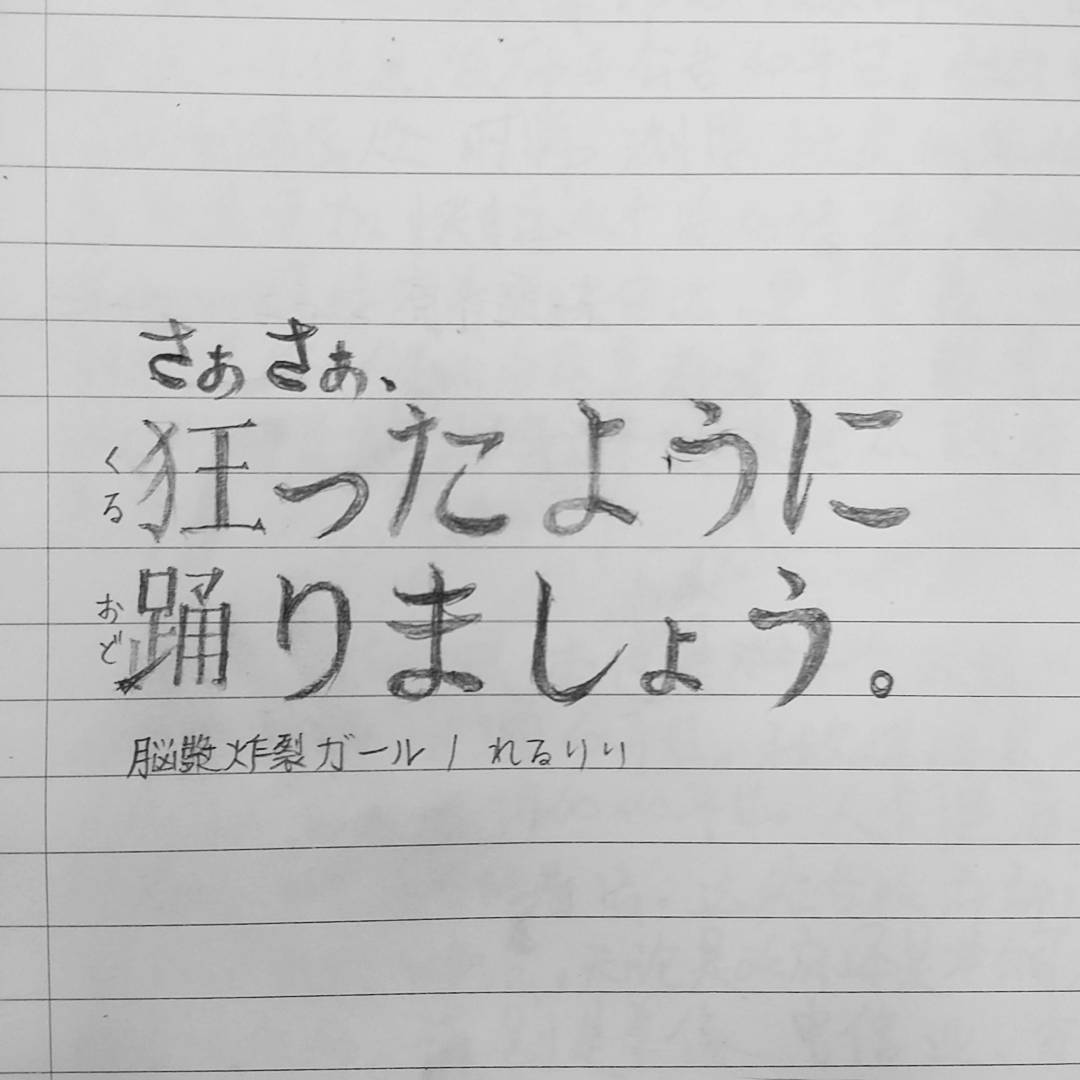 さぁさぁ、
狂ったように
くる
踊りましょう。
おど
脳漿炸裂ガール / れるりり